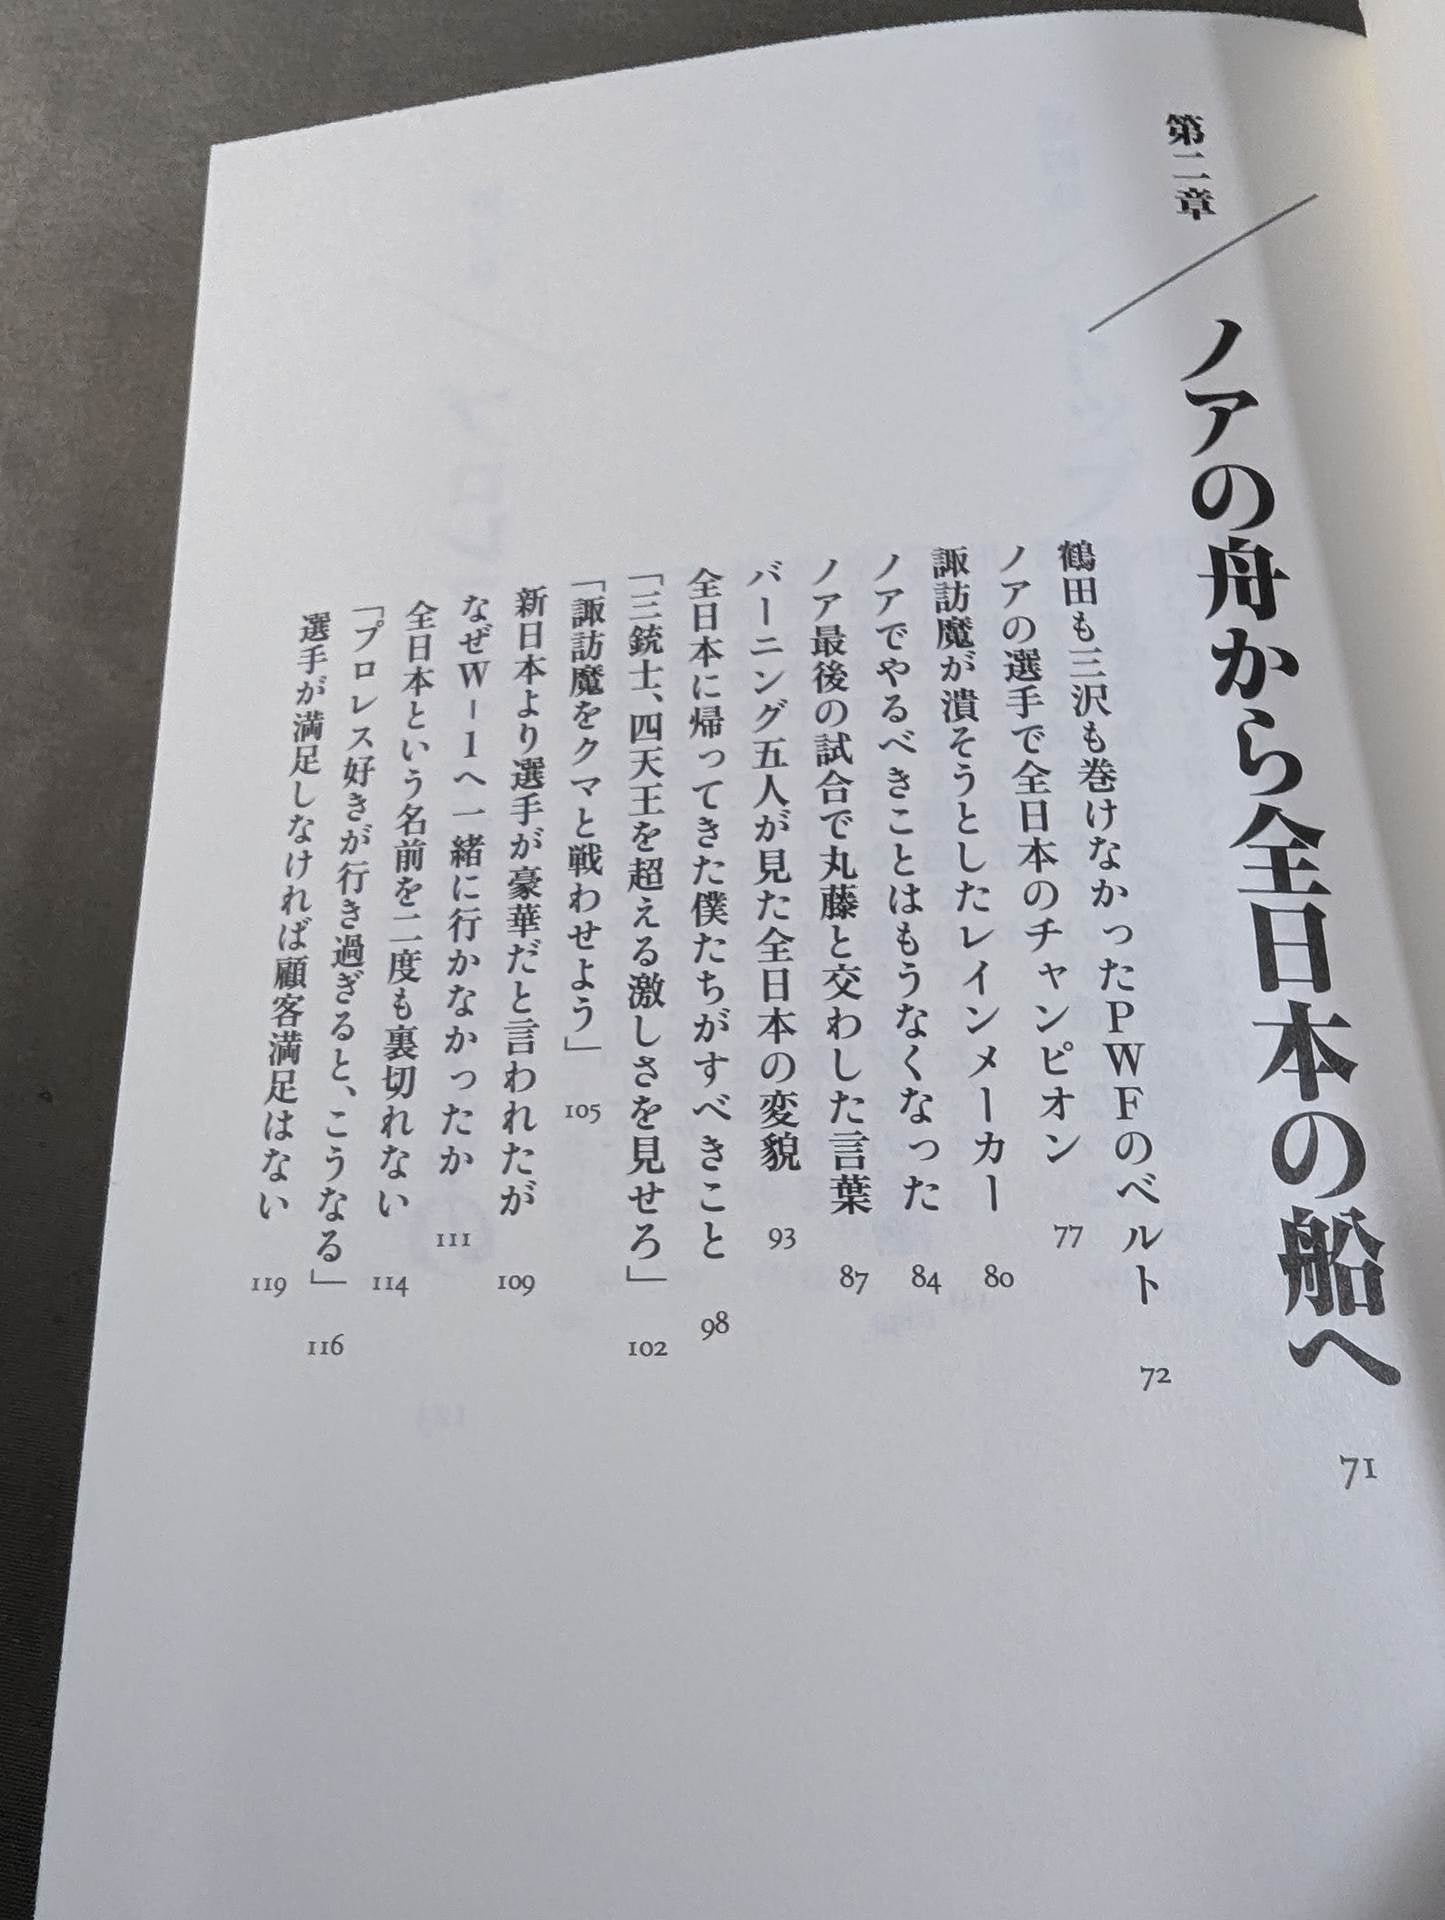 第二章
ノアの舟から全日本の船へ 71
鶴田も三沢も巻けなかったPWFのベルト 72
ノアの選手で全日本のチャンピオン 77
諏訪魔が潰そうとしたレインメーカー 80
ノアでやるべきことはもうなくなった 84
ノア最後の試合で丸藤と交わした言葉 87
バーニング五人が見た全日本の変貌 93
全日本に帰ってきた僕たちがすべきこと 98
「三銃士、四天王を超える激しさを見せろ」 102
「諏訪魔をクマと戦わせよう」 105
新日本より選手が豪華だと言われたが 109
なぜW-1へ一緒に行かなかったか 111
全日本という名前を二度も裏切れない 114
「プロレス好きが行き過ぎると、こうなる」 116
選手が満足しなければ顧客満足はない 119